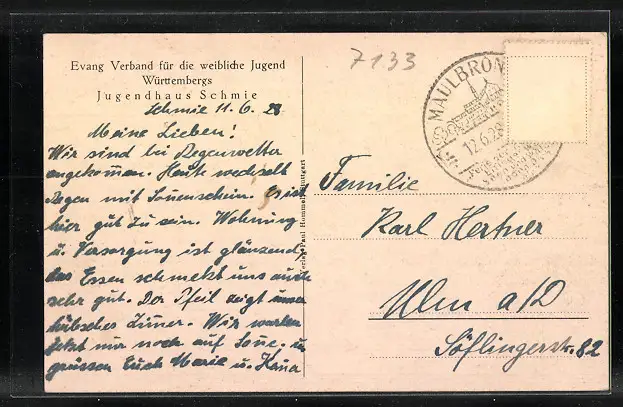 Evang Verband für die weibliche Jugend
Württembergs
Jugendhaus Schmie
Schmie 11. 6. 28
Meine Lieben!
Wir sind bei Regenwetter
angekommen. Heute wechselt
Regen mit Sonenschein. Es ist
hier gut zu sein. Wohnung
u. Versorgung ist glänzend,
das Essen schmekt uns auch
sehr gut. Der Pfeil zeigt unser
hübsches Zimer. Wir warten
jetzt nur noch auf Sone. u.
grüssen Euch Marie u.
Verlag Paul Hommel, Stuttgart
7133
MAULBRON
12.6.28
Familie
Karl Hertner
Ulm a/D
Söflingerstr. 82